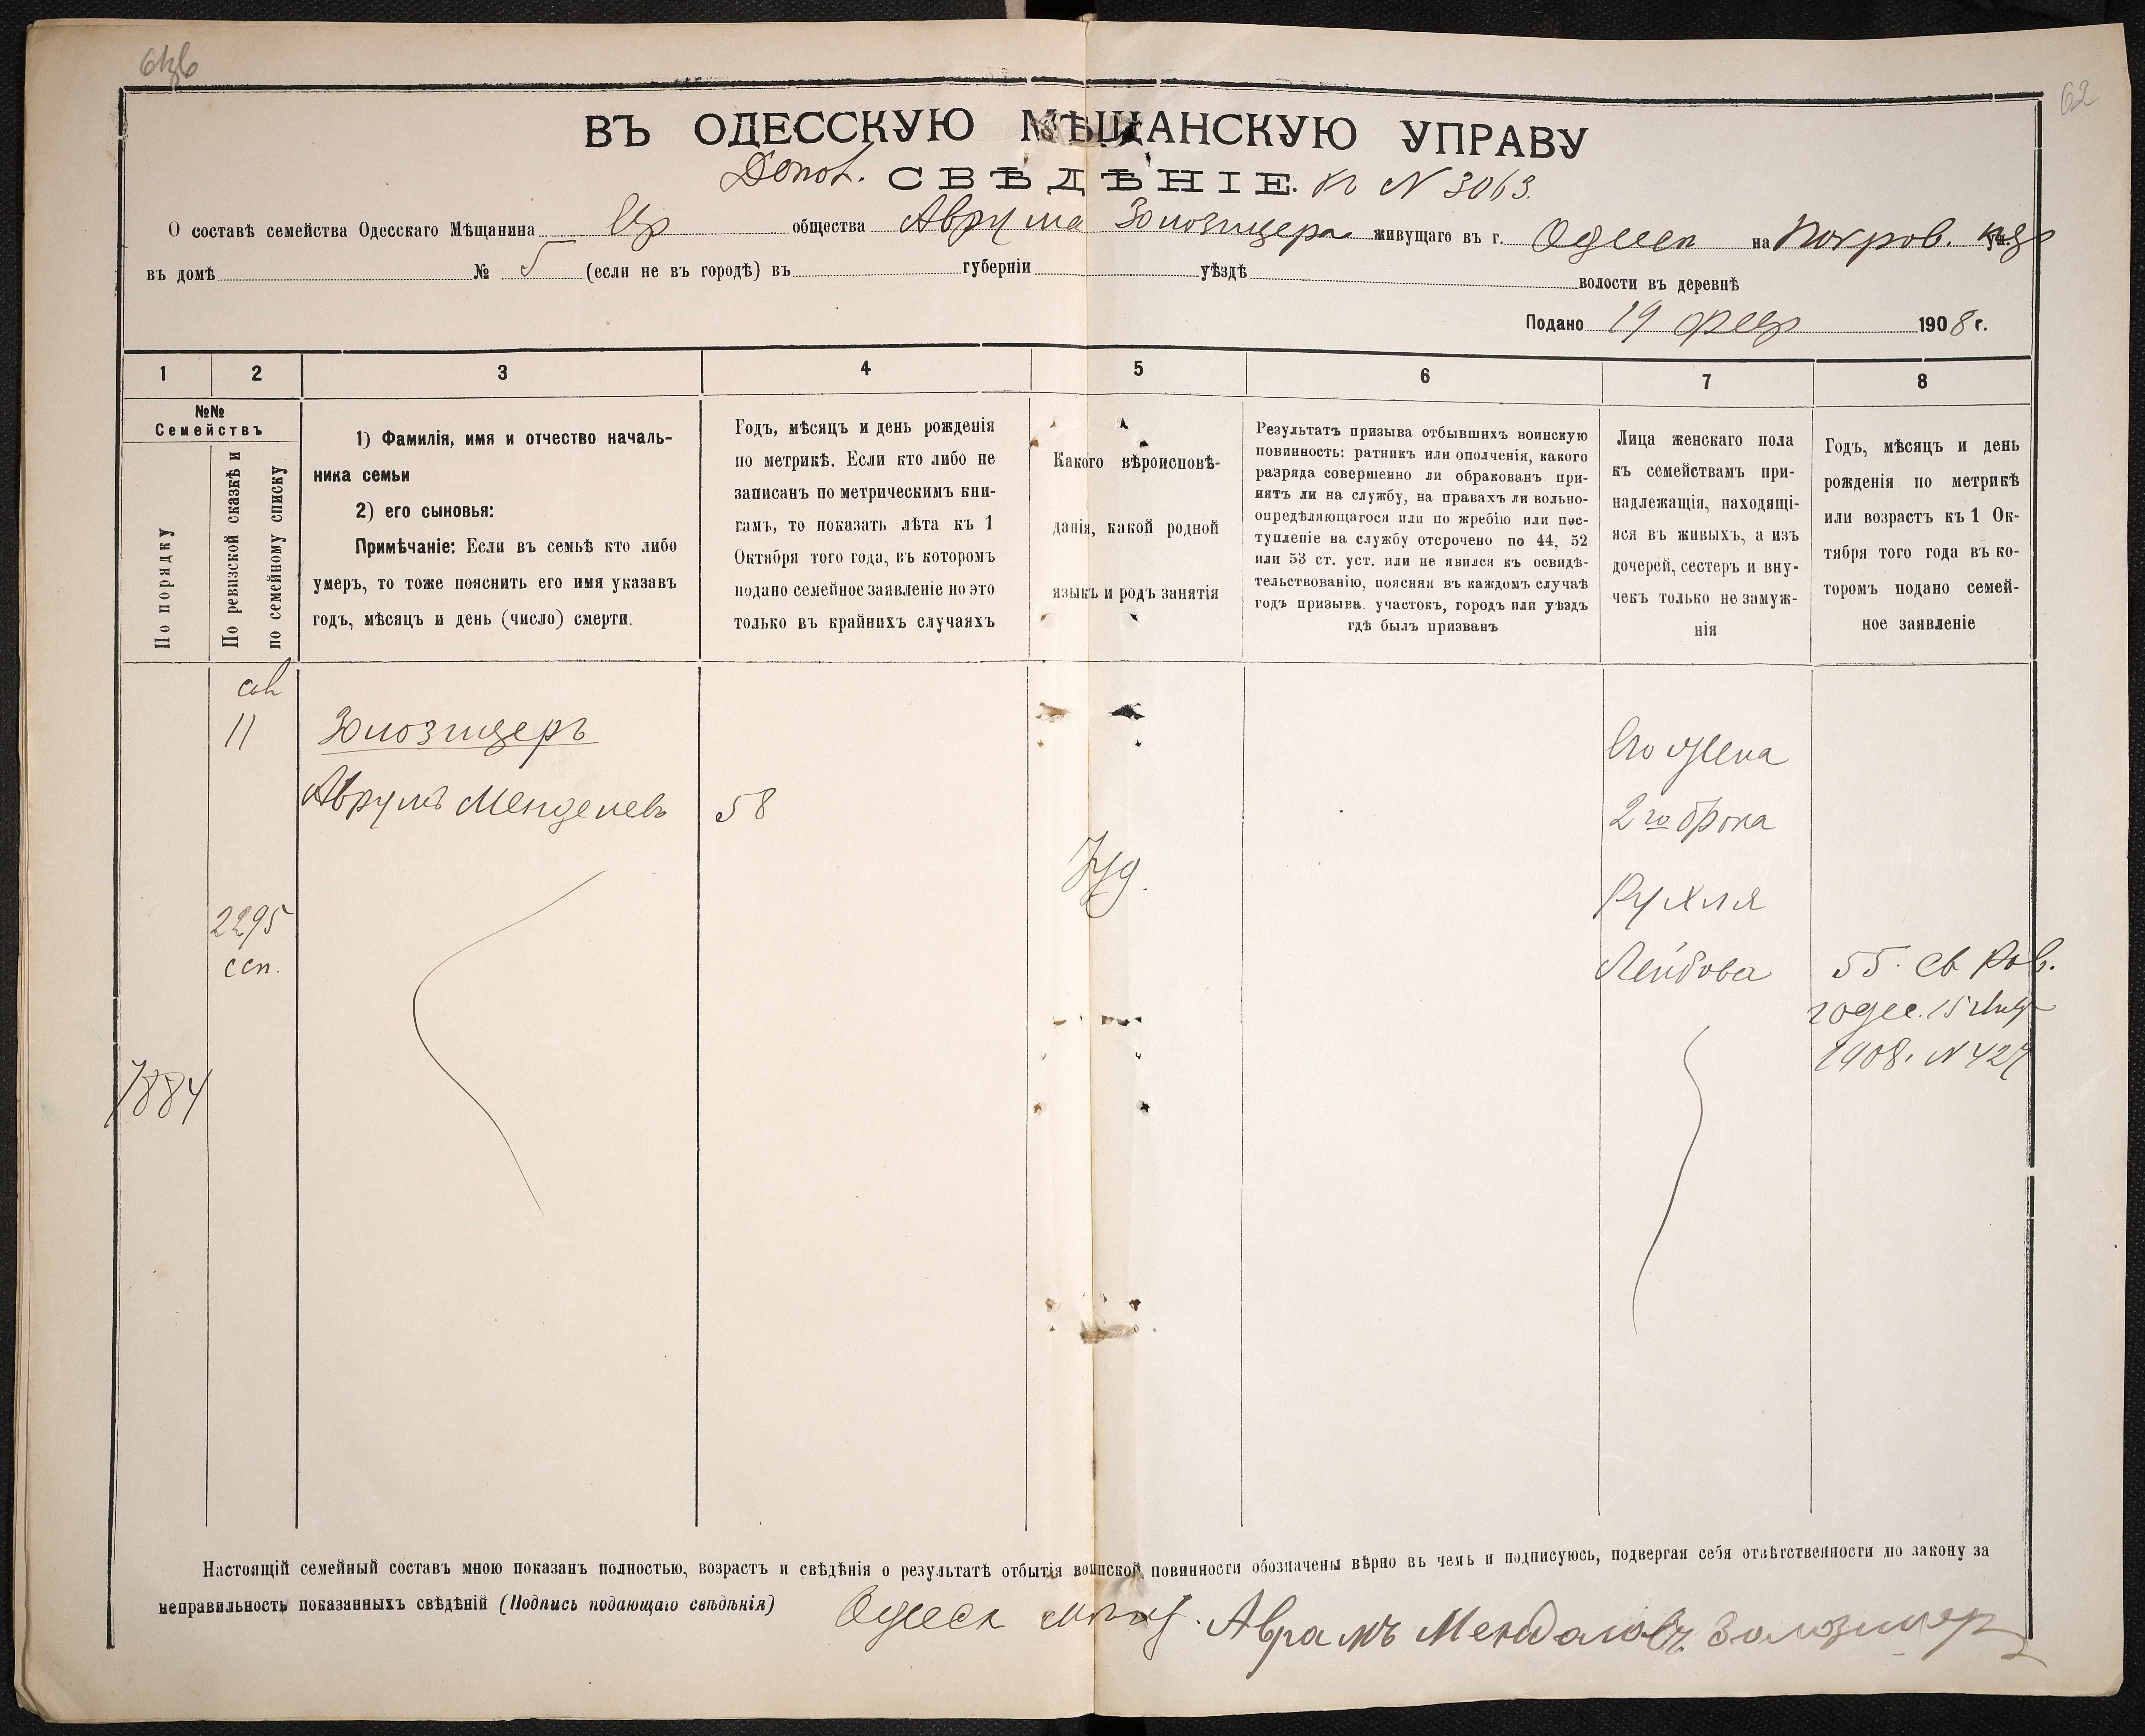 62
ВЪ ОДЕССКУЮ МѢЩАНСКУЮ УПРАВУ
Допол. СВѢДѢНІЕ. къ N 3063.
О составѣ семейства Одесскаго Мѣщанина Евр общества Аврума Золозицера живущаго въ г. Одессѣ на Покров. ул.
въ домѣ № 5 (если не въ городѣ) въ губерніи уѣздѣ волости въ деревнѣ
Подано 19 февр 1908 г.
1 2 3 4 5 6 7 8
№№ Семействъ
По порядку
По ревизской сказкѣ и по семейному списку
1) Фамилія, имя и отчество началь-
ника семьи
2) его сыновья:
Примѣчаніе: Если въ семьѣ кто либо
умеръ, то тоже пояснить его имя указавъ
годъ, мѣсяцъ и день (число) смерти.
Годъ, мѣсяцъ и день рожденія
по метрикѣ. Если кто либо не
записанъ по метрическимъ кни-
гамъ, то показать лѣта къ 1
Октября того года, въ которомъ
подано семейное заявленіе но это
только въ крайнихъ случаяхъ
Какого вѣроисповѣ-
данія, какой родной
языкъ и родъ занятія
Результатъ призыва отбывшихъ воинскую
повинность: ратникъ или ополченія, какого
разряда совершенно ли обракованъ при-
нятъ ли на службу, на правахъ ли вольно-
опредѣляющагося или по жребію или пос-
тупленіе на службу отсрочено по 44, 52
или 53 ст. уст. или не явился къ освидѣ-
тельствованію, поясняя въ каждомъ случаѣ
годъ призыва. участокъ, городъ или уѣздъ
гдѣ былъ призванъ
Лица женскаго пола
къ семействамъ при-
надлежащія, находящі-
яся въ живыхъ, а изъ
дочерей, сестеръ и вну-
чекъ только незамуж-
нія
Годъ, мѣсяцъ и день
рожденія по метрикѣ
или возрастъ къ 1 Ок-
тября того года въ ко-
торомъ подано семей-
ное заявленіе
11 Золозицеръ
Аврумъ Менделевъ 58
Его жена
2го брака
Іуд.
Рухля
2295
Лейбова 55. св Рав.
годес. 15 Янв
1908. N 427
7884
Настоящій семейный составъ мною показанъ полностью, возрастъ и свѣдѣнія о результатѣ отбытія воинской повинности обозначены вѣрно въ чемъ и подписуюсь, подвергая себя отвѣтственности по закону за
неправильность показанныхъ свѣдѣній (Подпись подающаго свѣдѣнія) Одесск мѣщ. Аврамъ Мендаловъ Золозицер